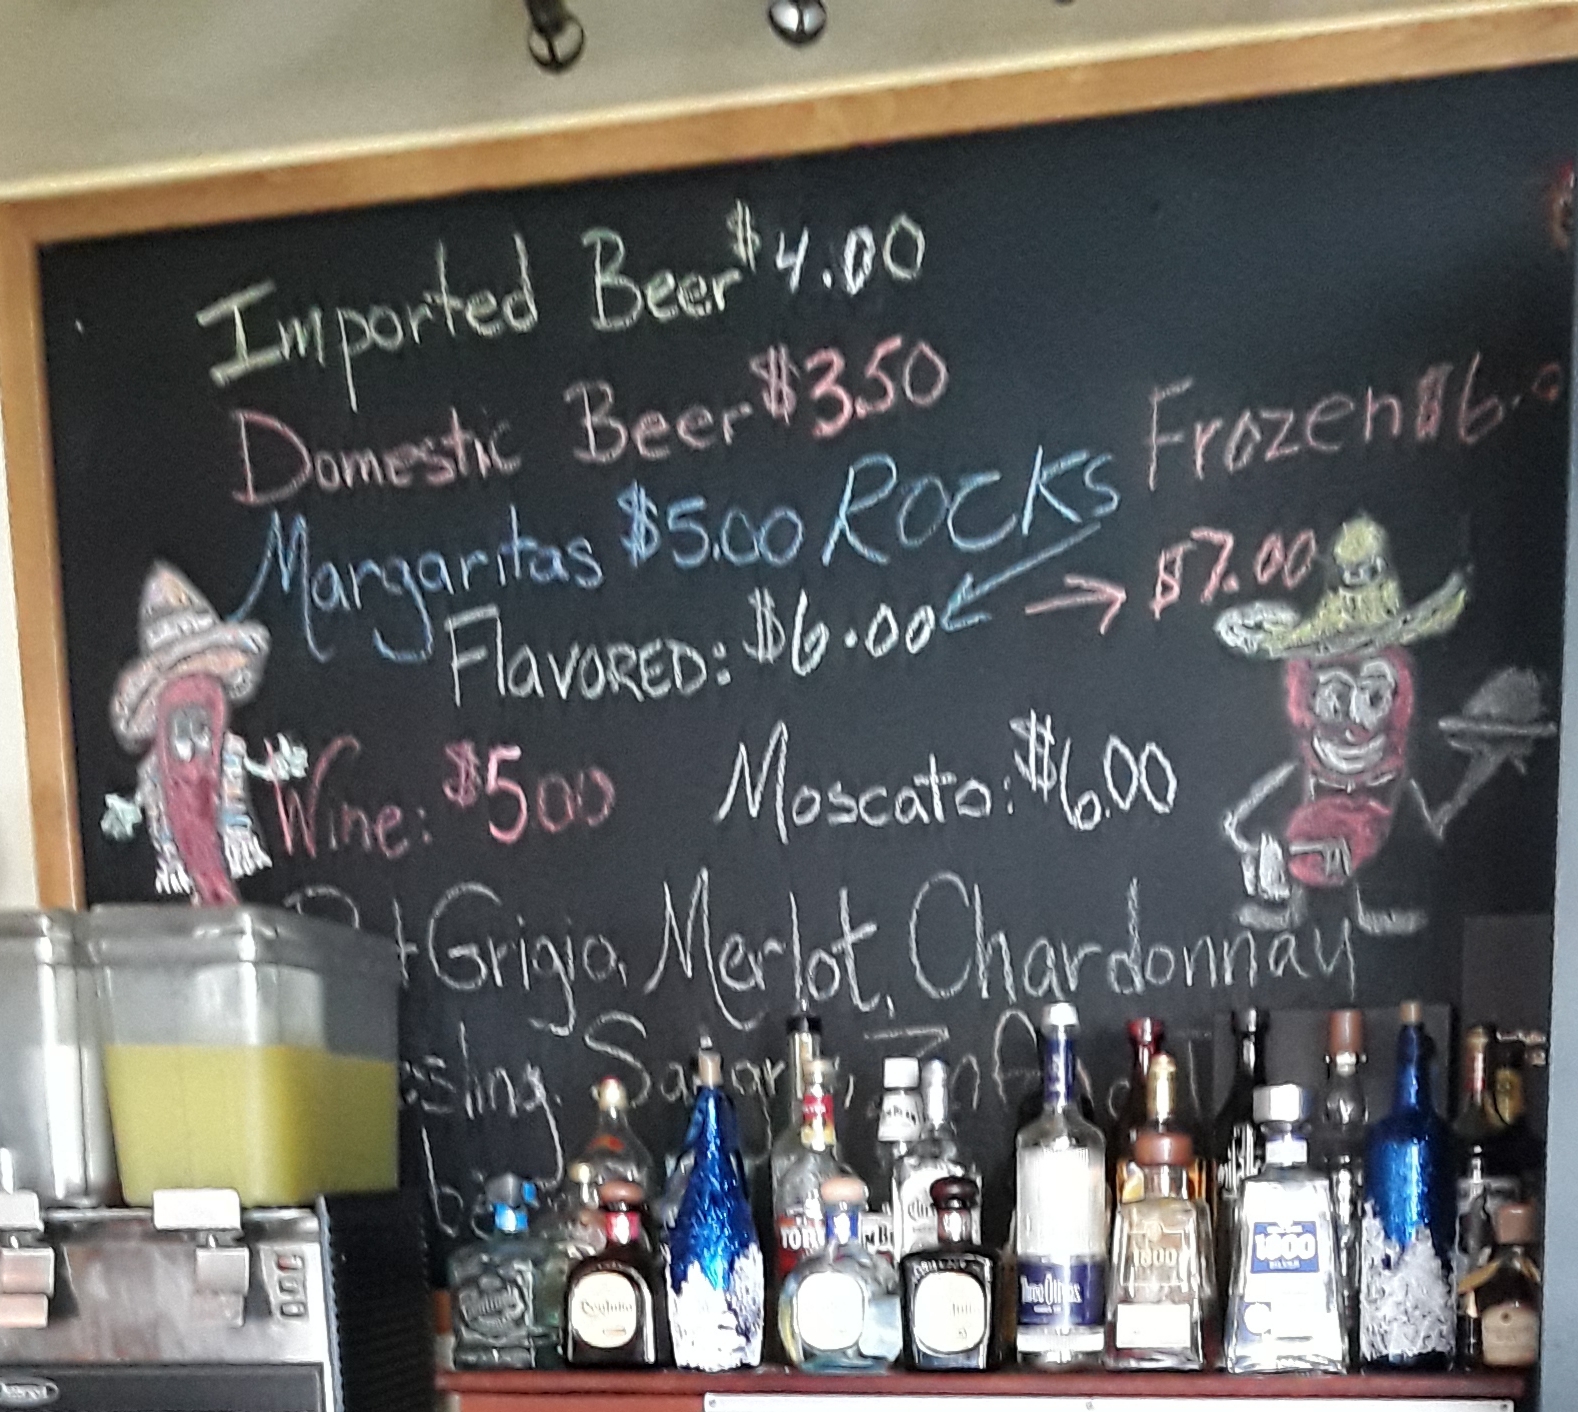 Imported Beer $4.00
Domestic Beer $3.50
Frozen $6.0
Margaritas $5.00 ROCKS
Flavored: $6.00
→ $7.00
Wine: $5.00
Moscato: $6.00
Grigio, Merlot, Chardonnay
1800
1800
SILVER
Three Olives